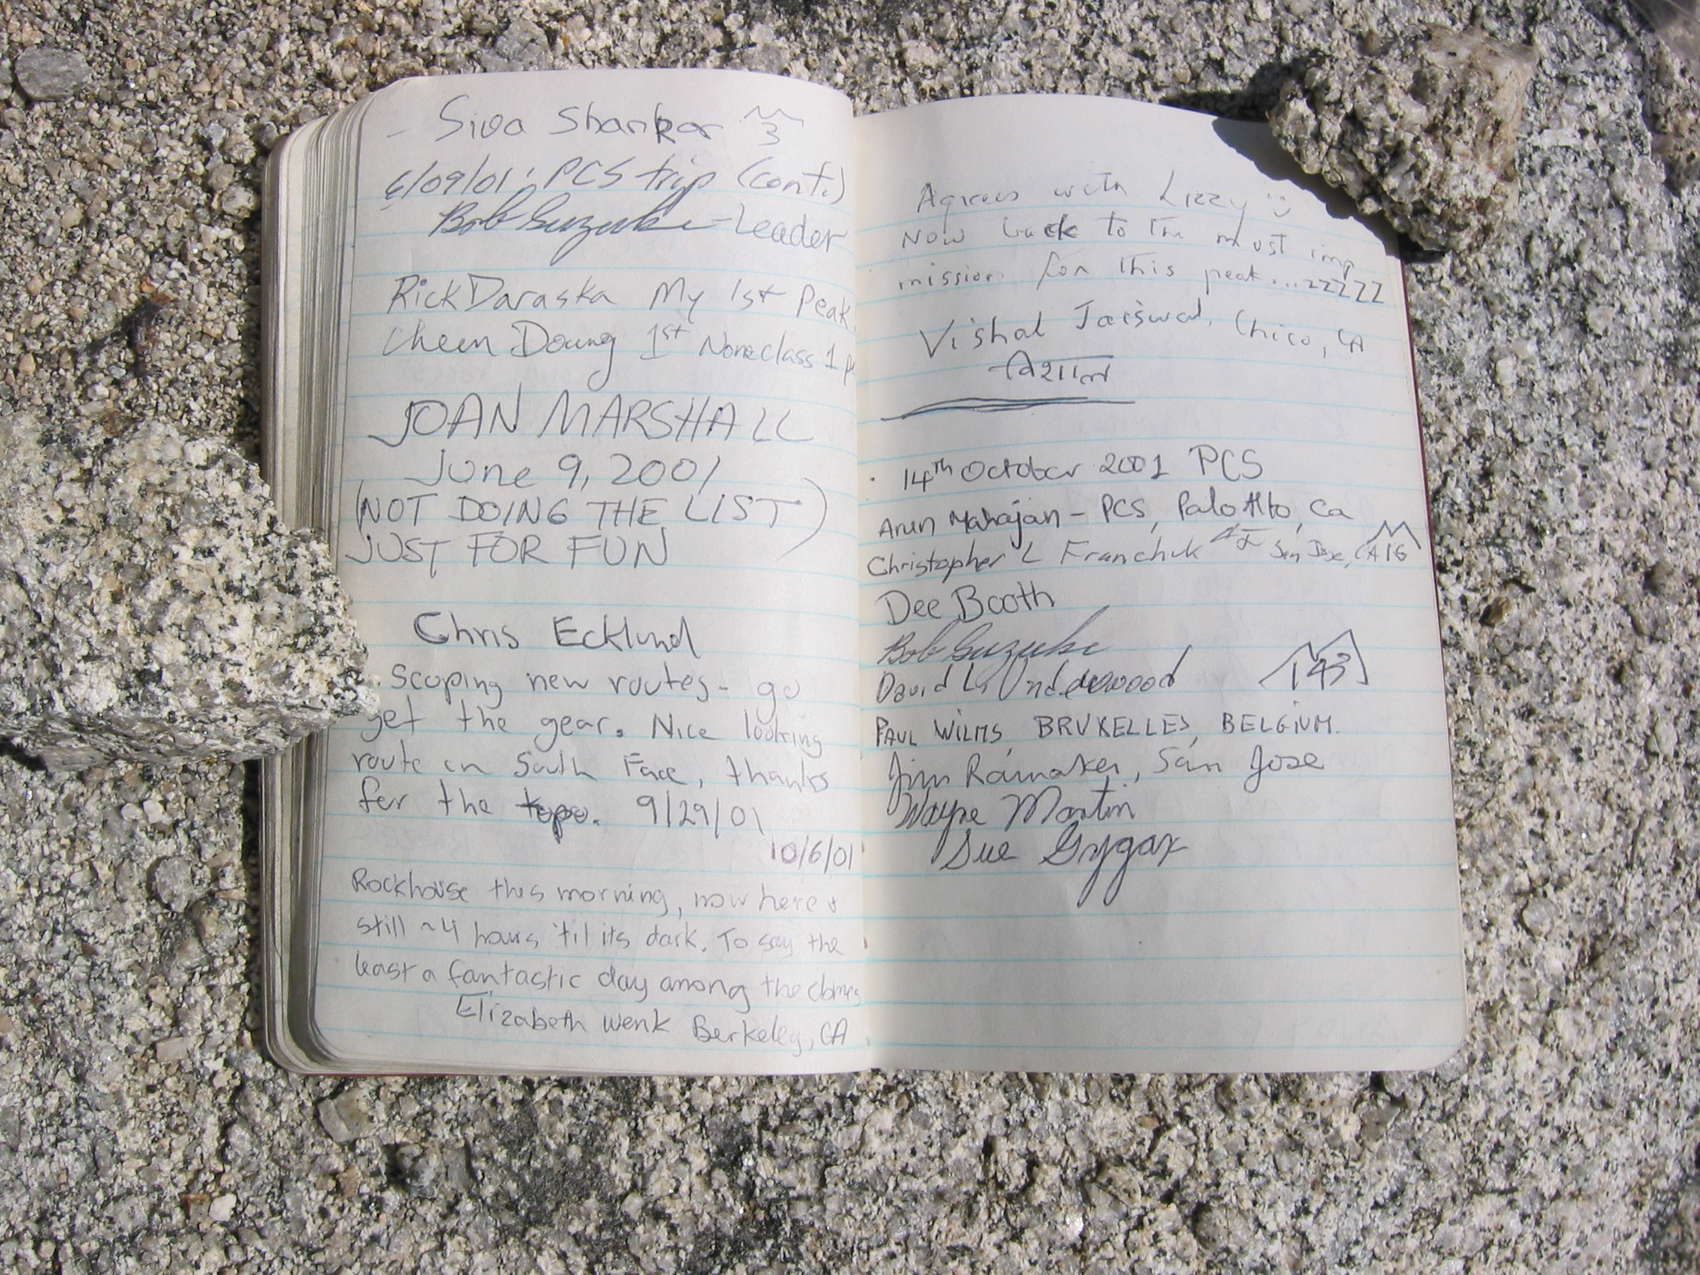 - Siva Shankar 3
6/09/01: PCS trip (cont.)
Bob Suzuki - Leader
Rick Daraska My 1st Peak
Cheen Doung 1st Non class 1
JOAN MARSHALL
June 9, 2001
(NOT DOING THE LIST)
JUST FOR FUN
Chris Ecklund
Scoping new routes - go
get the gear. Nice looking
route on South Face, thanks
for the topo. 9/29/01
10/6/01
Rockhouse this morning, now here &
still ~4 hours 'til its dark. To say the
least a fantastic day among the domes
Elizabeth Wenk Berkeley, CA
Agrees with Lizzy :)
Now back to the most imp
mission for this peak...zzzzz
Vishal Jaiswal, Chico, CA
विशाल
14th October 2001 PCS
Arun Mahajan - PCS, Palo Alto, Ca
Christopher L Franchuk San Jose, CA 16
Dee Booth
Bob Suzuki
David L Underwood 143
PAUL WILMS, BRUXELLES, BELGIUM.
Jim Ramaker, San Jose
Wayne Martin
Sue Gygax